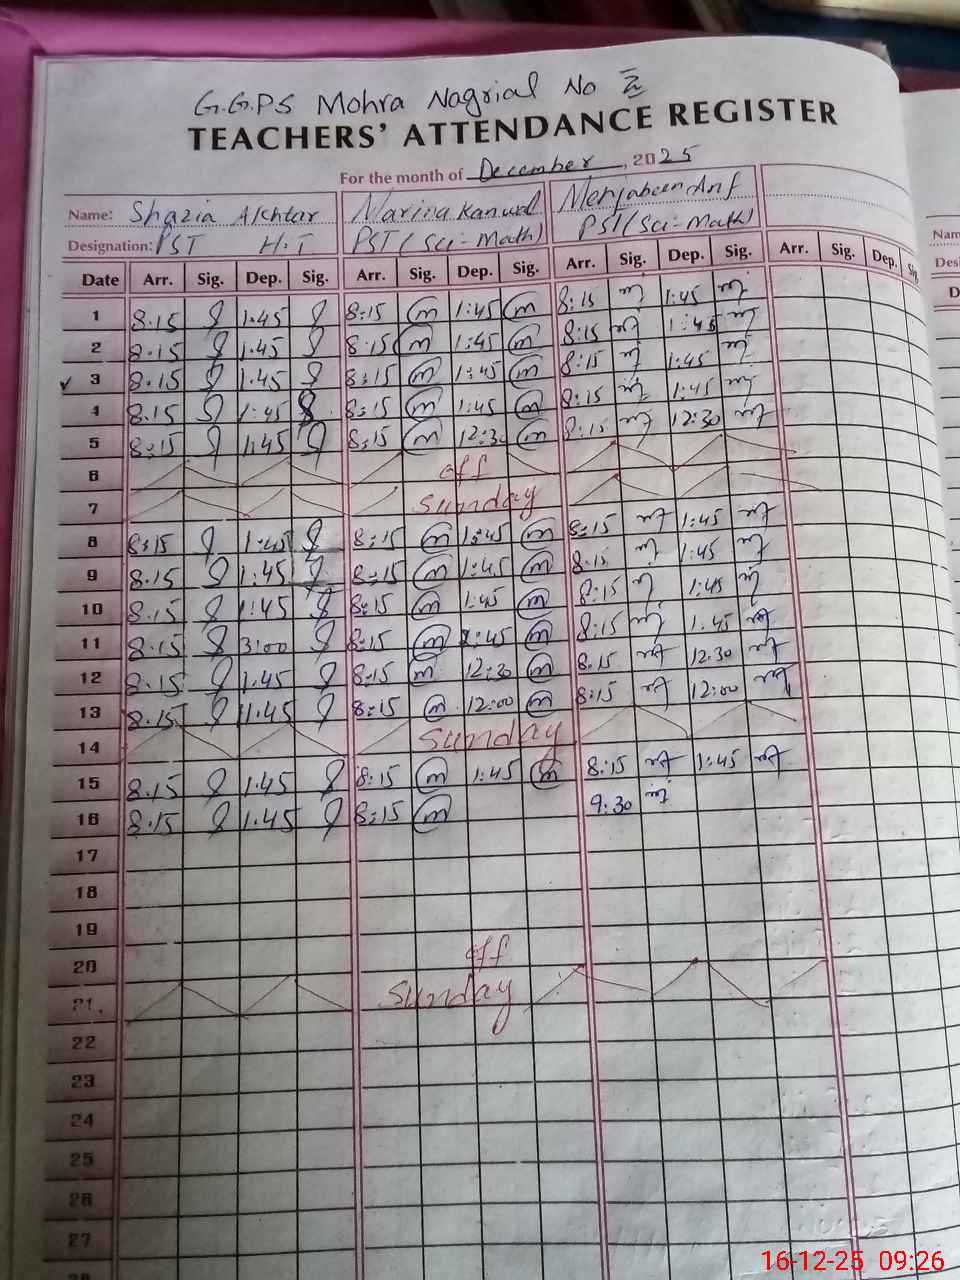 G.G.P.S Mohra Nagrial No
TEACHERS' ATTENDANCE REGISTER
For the month of December, 2025
Name: Shazia Akhtar Marina Kanwal Mehjabeen Arif
Designation: PST H.T PST (Sci-Math) PST (Sci-Math)
Date Arr. Sig. Dep. Sig. Arr. Sig. Dep. Sig. Arr. Sig. Dep. Sig. Arr. Sig. Dep. Sig.
1 8.15 1.45 8:15 m 1:45 m 8:15 1:45
2 8.15 1.45 8:15 m 1:45 m 8:15 1:45
3 8.15 1.45 8:15 m 1:45 m 8:15 1:45
4 8.15 1:45 8:15 m 1:45 m 8:15 1:45
5 8:15 1:45 8:15 m 12:30 m 8:15 12:30
6 off
7 Sunday
8 8:15 1:45 8:15 m 1:45 m 8:15 1:45
9 8.15 1:45 8:15 m 1:45 m 8:15 1:45
10 8.15 1:45 8:15 m 1:45 m 8:15 1:45
11 8.15 3:00 8:15 m :45 m 8:15 1.45
12 8.15 1.45 8:15 m 12:30 m 8.15 12.30
13 8.15 1.45 8:15 m 12:00 m 8:15 12:00
14 Sunday
15 8.15 1.45 8:15 m 1:45 m 8:15 1:45
16 8.15 1.45 8:15 m 9:30
17
18
19
20 off
21 Sunday
22
23
24
25
26
27
16-12-25 09:26